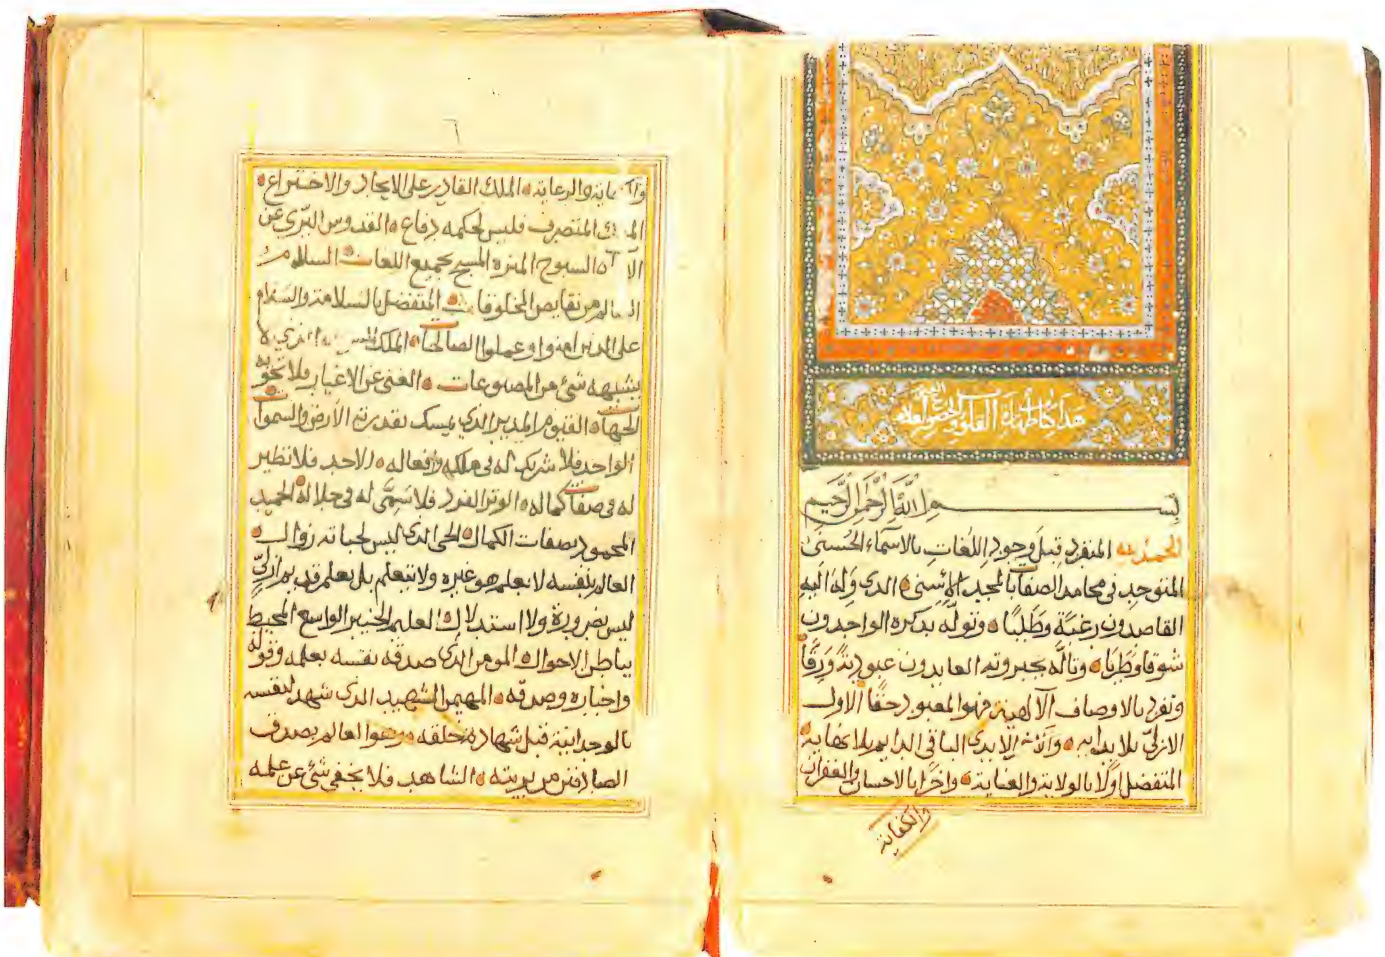 هذا كتاب طهارة القلوب والخضوع لعلام الغيوب
بسم الله الرحمن الرحيم
الحمد لله المنفرد قبل وجود اللغات بالاسماء الحسنى
المتوحد في محامد الصفات بالمجد الاسنى الذي وله اليه
القاصدون رغبة وطلبًا وتوله بذكره الواجدون
شوقا وطربا وتاله بجبروته العابدون عبودية ورقًا
وتفرد بالاوصاف الالهية فهو المعبود حقًا الاول
الازلي بلا بداية والاخر الابدي الباقي الدايم بلا نهاية
المتفضل اولا بالولاية والعناية واخرًا بالاحسان والغفران
والكفاية
والرعاية الملك القادر على الايجاد والاختراع
المتصرف فليس لحكمه دفاع القدوس البري عن
السبوح المنزه المسبح بجميع اللغات السلام
من نقايص المخلوقات المتفضل بالسلامة والسلام
على الذين امنوا وعملوا الصالحات الملك الذي لا
يشبهه شئ من المصنوعات الغني عن الاغيار فلا تحويه
الجهات القيوم المدبر الذي يمسك بقدرته الأرض والسموات
الواحد فلا شريك له في ملكه وافعاله الاحد فلا نظير
له في صفات كماله الوتر الفرد فلا سمي له في جلاله الحميد
المحمود بصفات الكمال الحي الذي ليس لحياته زوال
العالم بنفسه لا يعلم هو غيره ولا بتعلم بل بعلم قديم ازليّ
ليس بضرورة ولا استدلال العليم الخبير الواسع المحيط
بباطن الاحوال المومن الذي صدق نفسه بعلمه وقوله
واخباره وصدقه المهيمن الشهيد الذي شهد لنفسه
بالوحدانية قبل شهادة خلقه وهو العالم بصدق
الصادقين من بريته الشاهد فلا يخفى شئ عن علمه